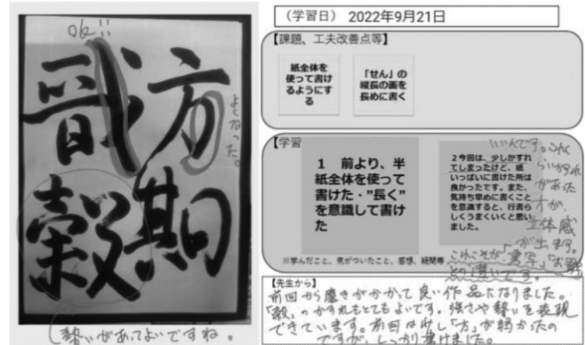 OK!!
方期
戩穀
よくなった。
勢いがあってよいですね。
(学習日) 2022年9月21日
【課題、工夫改善点等】
紙全体を
使って書け
るようにす
る
「せん」の
縦長の画を
長めに書く
【学習
1 前より、半
紙全体を使って
書けた・"長く"
を意識して書け
た
2今回は、少しかすれ
てしまったけど、紙
いっぱいに書けた所は
良かったです。また、
気持ち早めに書くこと
を意識すると、行書ら
しくうまくいくと思い
ました。
いいんです。これ
くらいかすれ
があった
方が、
立体感
が出ます。
これこそが「書写」と
の違いです。
※学んだこと、気がついたこと、感想、疑問等
【先生から】
前回から磨きがかかって良い作品になりました。
「穀」のかすれもとてもよいです。強さや勢いを表現
できています。前回は少し「方」が弱かったの
ですが、しっかり書けました。